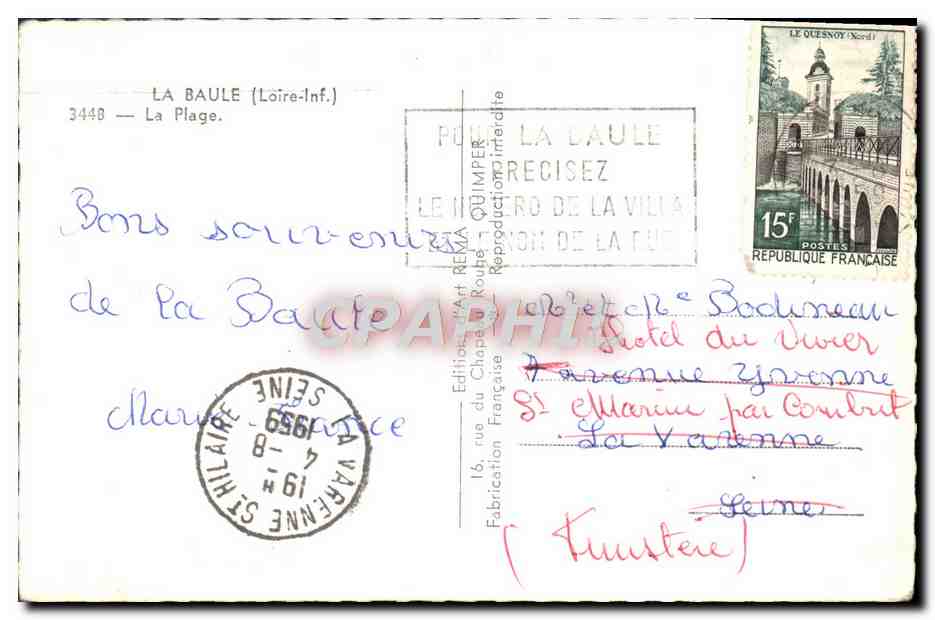 LA BAULE (Loire-Inf.)
3448 — La Plage.
Bons souvenirs
de la Baule
Marie France
POUR LA BAULE
PRECISEZ
LE NUMERO DE LA VILLA
ET LE NOM DE LA RUE
Edition d'Art REMA QUIMPER
16, rue du Chapeau Rouge
Fabrication Française Reproduction interdite
LE QUESNOY (Nord)
15F
POSTES
REPUBLIQUE FRANÇAISE
CPAPHIL
Mr et Me Bodineau
Hotel du Vivier
7 avenue Yvonne
St Marine par Combrit
La Varenne
Seine
(Finistère)
LA VARENNE ST HILAIRE SEINE
19H
4 -8
1959